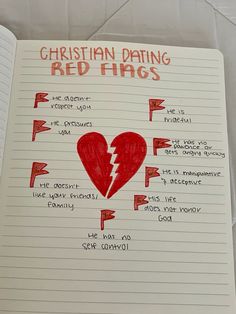 CHRISTIAN DATING
RED FlAGS
He doesn't
respect you
He is
prideful
He pressures
you
He has no
patience or
gets angry quickly
He is manipulative
& deceptive
He doesn't
like your friends/
family
His life
does not honor
God
He has no
self control